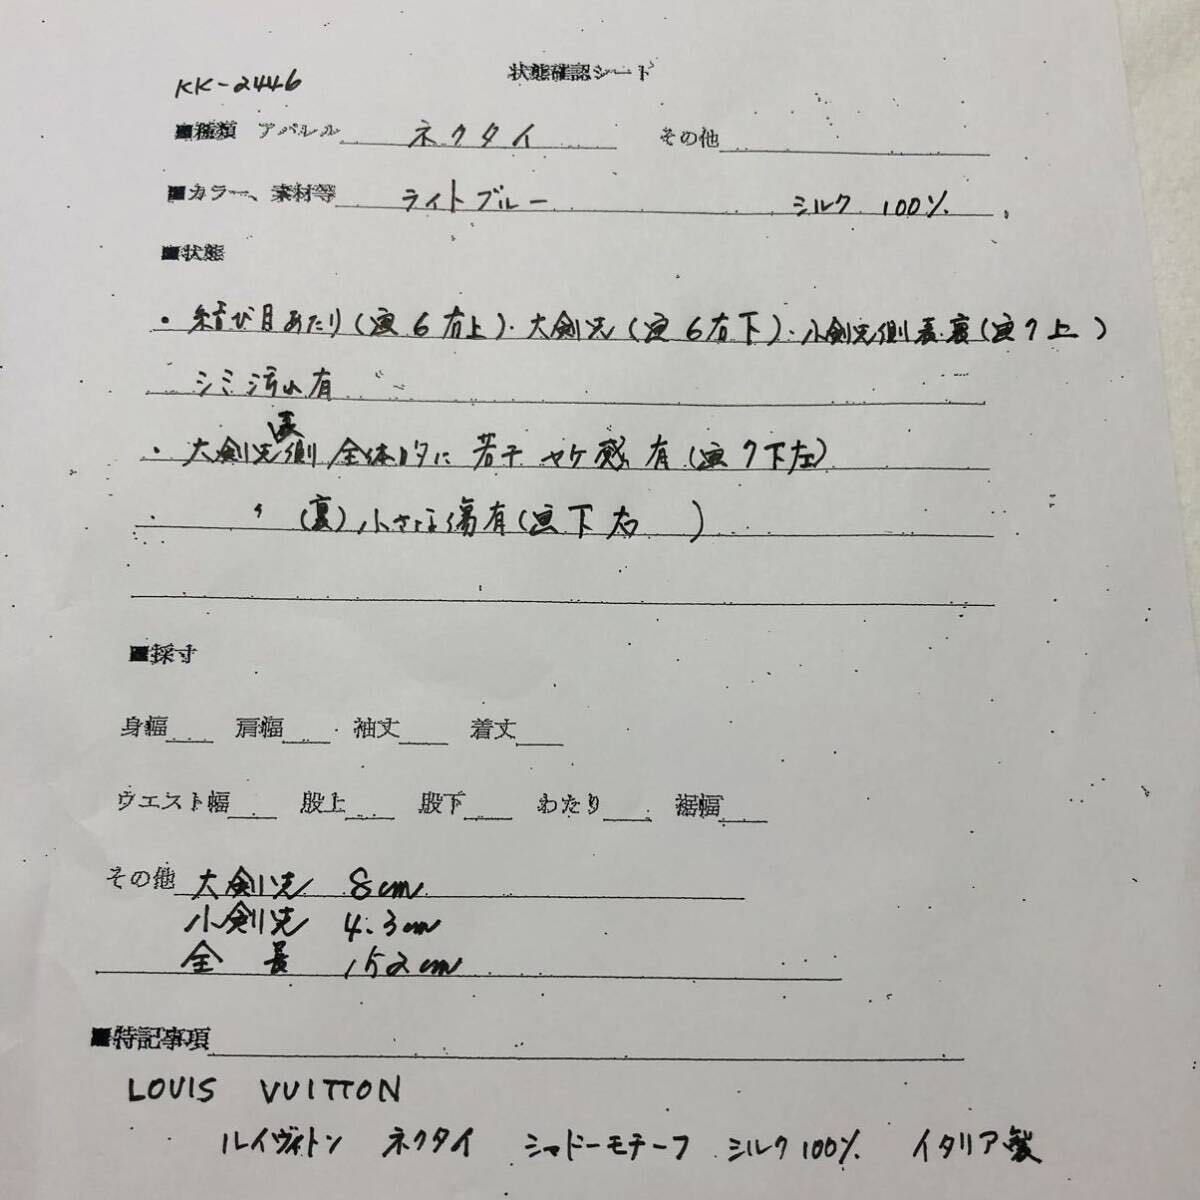 状態確認シート
KK-2446
■種類 アパレル ネクタイ その他
■カラー、素材等 ライトブルー シルク 100%
■状態
・結び目あたり(画6右上)・大剣先(画6右下)・小剣先側表裏(画7上)
シミ汚れ有
・大剣先表側 全体的に若干ヤケ感有(画7下左)
・ 〃 (裏)小さな傷有(画下右 )
■採寸
身幅 肩幅 袖丈 着丈
ウエスト幅 股上 股下 わたり 裾幅
その他 大剣先 8cm
小剣先 4.3cm
全長 152cm
■特記事項
LOUIS VUITTON
ルイヴィトン ネクタイ シャドーモチーフ シルク100% イタリア製